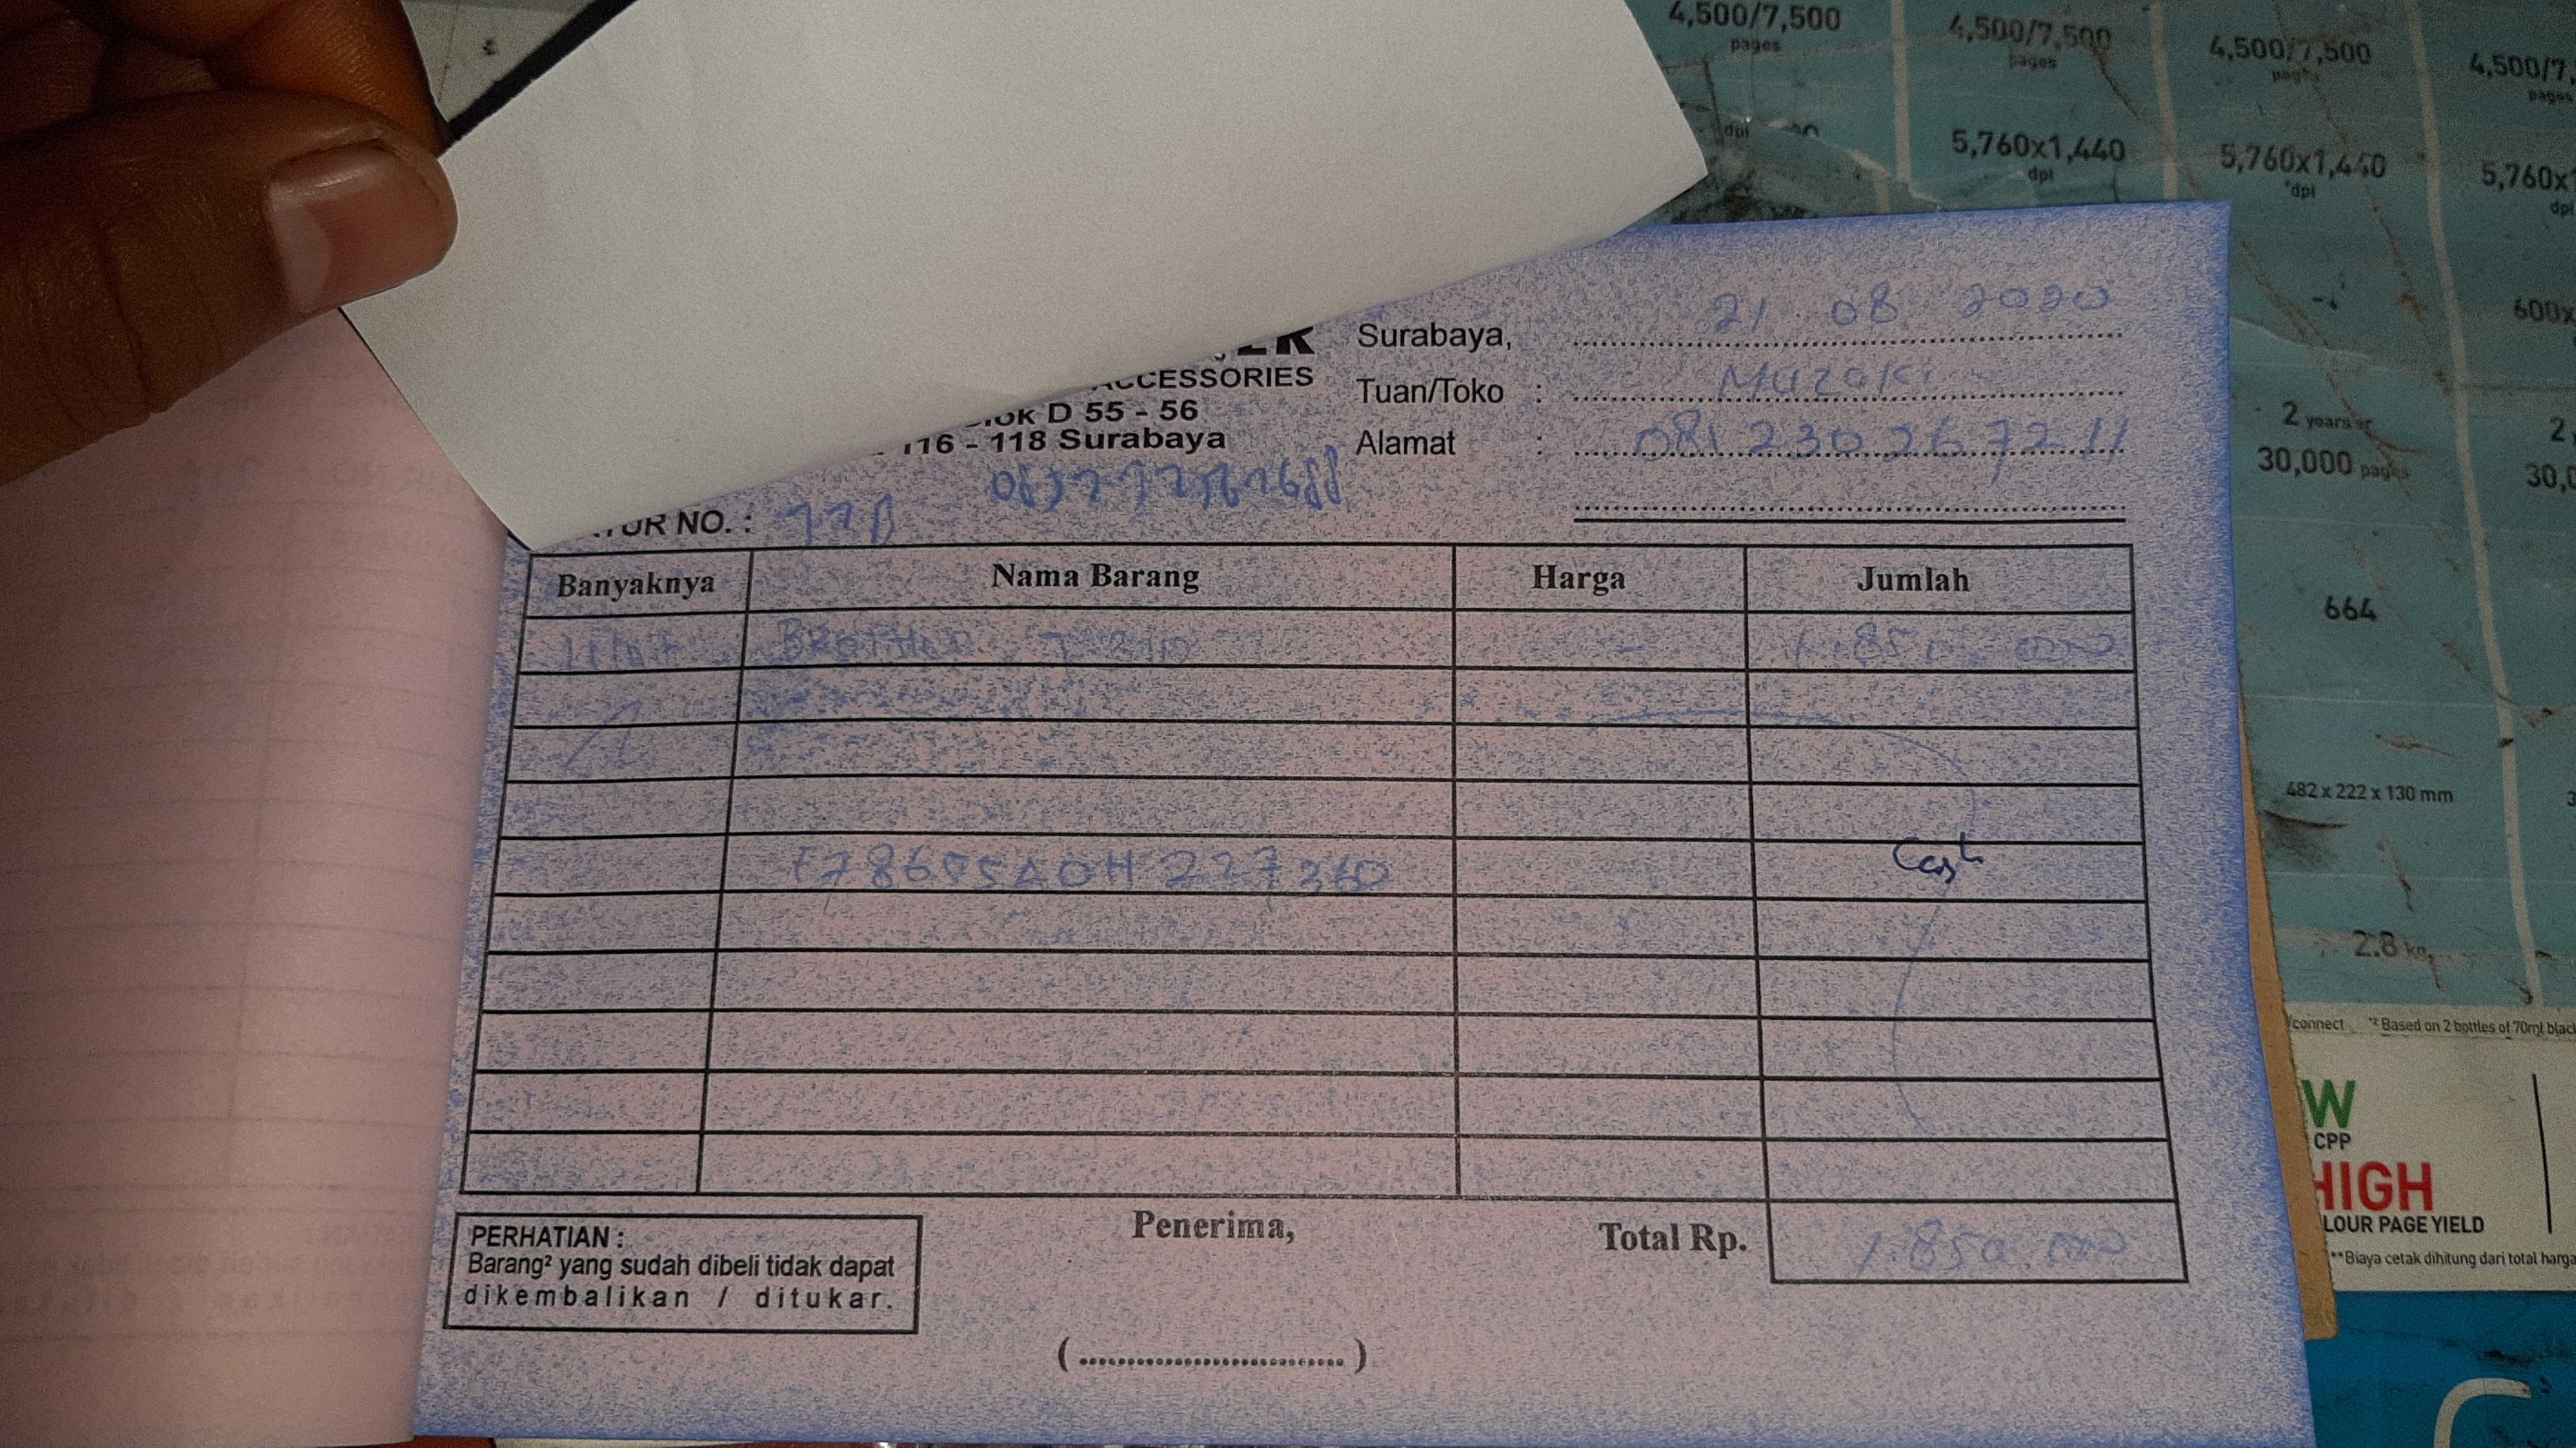 4,500/7,500 4,500/7,500 4,500/7,500 4,500/7,
pages pages pages pages
dpi 5,760x1,440 5,760x1,440 5,760x1
dpi dpi dpi
600x
2 years or 2
30,000 pages 30,0
664
482 x 222 x 130 mm
2.8 kg
/connect *² Based on 2 bottles of 70ml black
W
CPP
HIGH
LOUR PAGE YIELD
**Biaya cetak dihitung dari total harga
ER
ACCESSORIES
ok D 55 - 56
116 - 118 Surabaya
Surabaya, 21 08 2020
Tuan/Toko : MUZAKI
Alamat :
TUR NO. :
Banyaknya Nama Barang Harga Jumlah
1 Unit BROTHER T 310 1.850.000
Cash
PERHATIAN :
Barang² yang sudah dibeli tidak dapat
dikembalikan / ditukar.
Penerima,
(..............................)
Total Rp. 1.850.000